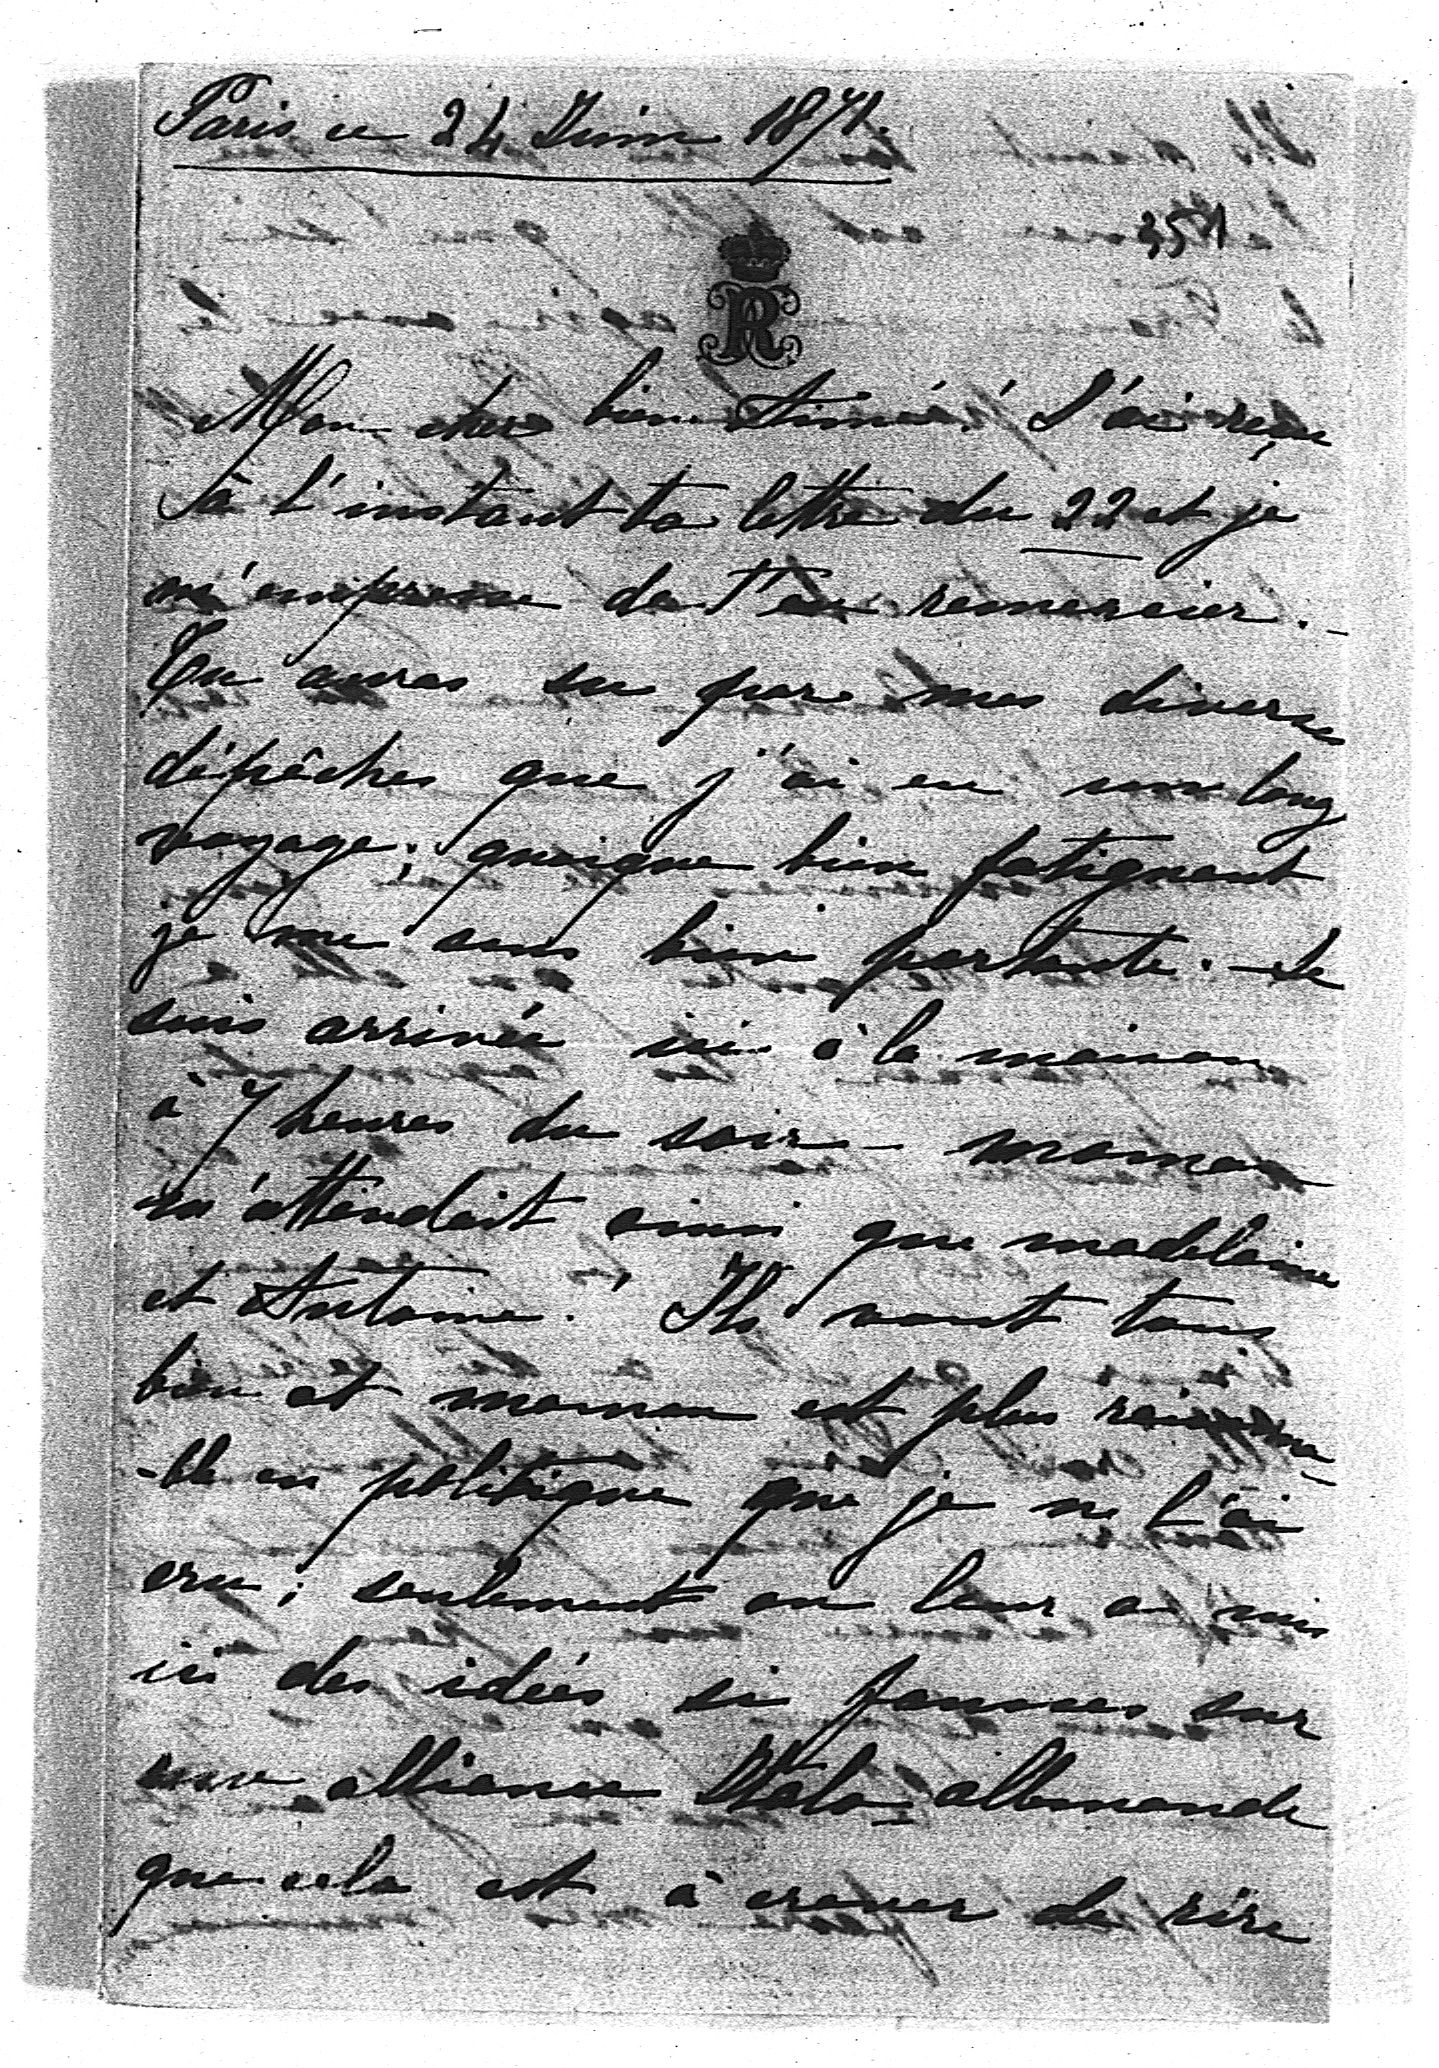 Paris ce 24 Juin 1871.
351
R
Mon cher bien Aimé! J'ai reçu
à l'instant ta lettre du 22 et je
m'empresse de t'en remercier.-
Tu auras su par mes diverses
dépêches que j'ai eu un long
voyage; quoique bien fatiguant
je me sens bien portante. - Je
suis arrivée ici à la maison
à 7 heures du soir - maman
m'attendait ainsi que madelaine
et Antoine. Ils vont tous
bien et maman est plus raisonna
-ble en politique que je ne l'ai
cru; seulement on leur a mis
ici des idées si fausses sur
une alliance Italo-allemande
que cela est à crever de rire